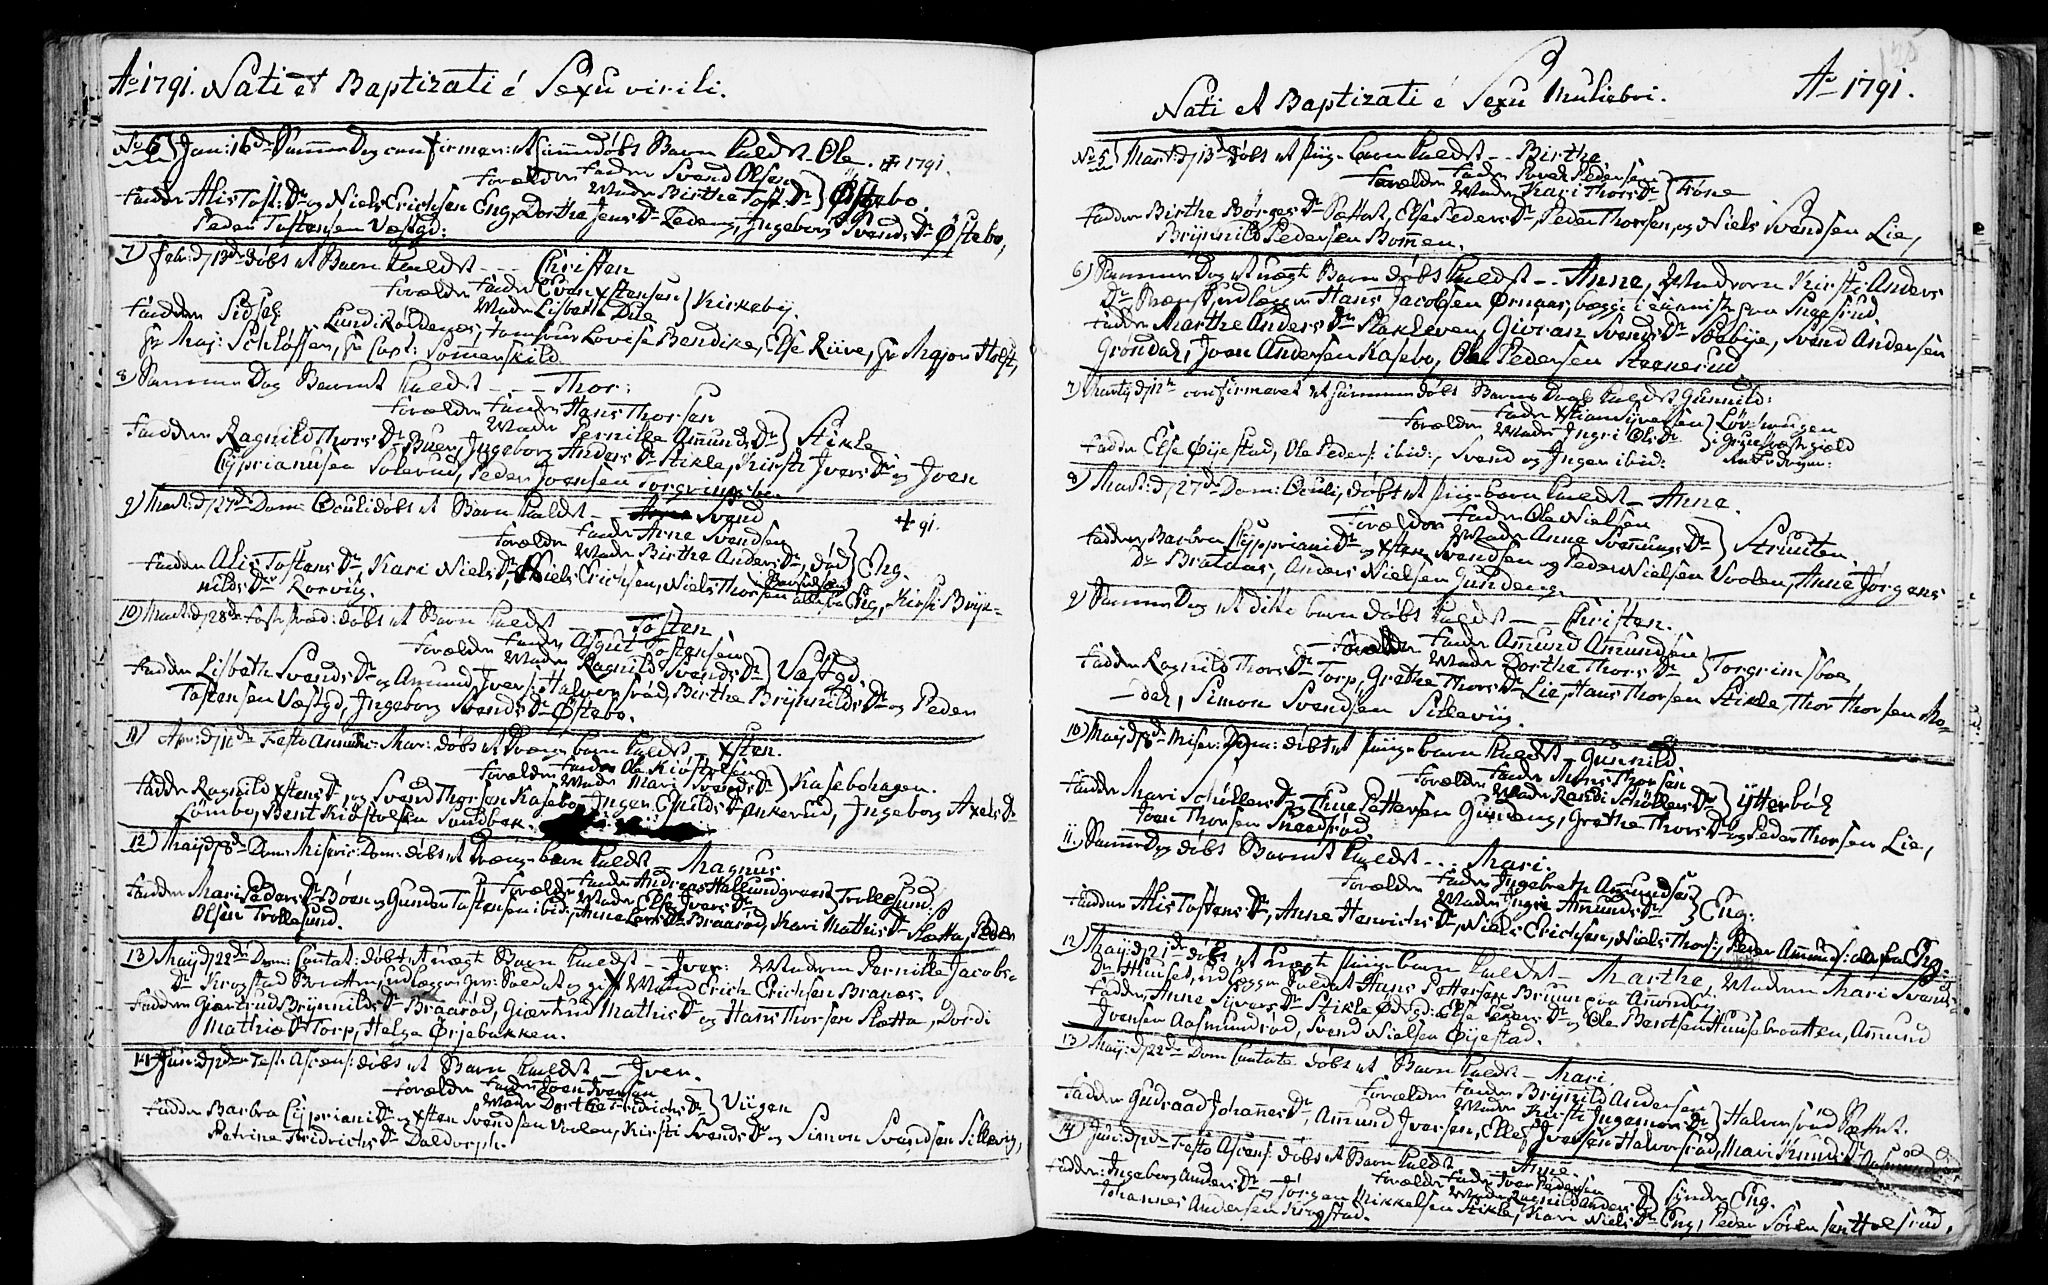 Ao 1791. Nati et Baptizati é Sexu virili.
No 6) Jan: 16d Samme Dag confirmeret hiemmedøbt Barn kaldet Ole. † 1791.
Forældre Fader Svend Olsen
Moder Birthe Tost. Dr } Østebo.
Faddere Alis Tost: Dr og Niels Erichsen Eng, Dorthe Jens Dr Ledeng, Ingeborg Svends Dr Østebo,
Peder Tostensen Væstgd:
7) Febr: d/13de døbt et Barn kaldet - - Christen
Forældre Fader Even Xstensen
Moder Lisbeth Dile } Kirkebÿ.
Faddere Sidsel Lund Røddenæs, Jomfrue Lovise Bendike, Else Riive, Hr Major Holst,
Hr Maj: Schlossen, Hr Capt: Sommerskild.
8) Samme Dag Barnet kaldet - - - Thor:
Forældre Fader Hans Thorsen
Moder Pernille Amunds Dr } Stikle
Faddere Ragnild Thors Dr Buer, Ingeborg Anders Dr Stikle, Kirsti Ivers Dr og Joen
Cyprianusen Solerud, Peder Joensen Torgrimsbøe.
9) Mart: d/27de Dom: Oculi døbt et Barn kaldet - Svend † 91.
Forældre Fader Arne Svendsen
Moder Birthe Anders Dr, død } Eng.
Faddere Alis Tostens Dr, Kari Niels Dr Niels Erichsen, Niels Thorsen alle fra Eng, Kirsti Brÿn-
nilds Dr Rørvig.
10) Mart: d/28de døbt et Barn kaldet - Tosten
Forældre Fader Asgut Tostensen
Moder Ragnild Svends Dr } Væstgd.
Faddere Lisbeth Svends Dr og Amund Ivers: Halversrød, Birthe Brÿnnilds Dr og Peder
Tostensen Væstgd, Ingeborg Svends Dr Østebo.
11) Apr: d/10de Festo Annunc: Mar: døbt et Drænge barn kaldet - Xsten.
Forældre Fader Ole Kiøstelsen
Moder Mari Svends Dr } Kasebohagen.
Faddere Ragnild Xstens Dr og Svend Thorsen Kasebo, Inger Eskilds Dr Ankerud, Ingeborg Axels Dr
Tømbo, Bent Kiøstelsen Sundbek.
12) Maÿ d/8de Dom: Miseric: Dom: døbt et Dræng-barn kaldet - Magnus
Forældre Fader Andreas Hallundgraes
Moder Else Ivers Dr } Trollesund.
Faddere Mari Peders Dr Bøen og Gunder Tostensen ibid:, Anne Lars Dr Braarød, Kari Mathis Dr Slætta, Peder
Olsen Trollesund.
13) Maÿ d/22de Dom: Cantat: døbt et uægte Barn kaldet - Iver: Moderen Pernille Jacobs
Dr Krogstad Barnefader udlægger gev: Soldat og gift Mand Erich Erichsen Branæs.
Faddere Giærtrud Brÿnnilds Dr Braarød, Giærtrud Mathis Dr og Hans Thorsen Slætta, Dordi
Mathiæ Dr Torp, Helge Ørjebakken.
14) Jun: d/2de Fest: Ascens: døbt et Barn kaldet - Iver.
Forældre Fader Joen Iversen
Moder Dorthe Fridrichs Dr } Viigen
Faddere Barbra Cÿpriani Dr og Xsten Svendsen Voolen, Kirsti Svends Dr og Simon Svendsen Sillevig,
Petrine Fridrichs Dr Daldorph.
175
Nati et Baptizati é Sexu Muliebri. Ao 1791.
No 5) Mart: d/13de døbt et pige-barn kaldet - - Birthe
Forældre Fader Povel Pedersen
Moder Kari Thors Dr } Tøne
Faddere Birthe Børges Dr Sættet, Else Peders Dr, Peder Thorsen, og Niels Svendsen Lie,
Brÿnnild Pedersen Bommen.
6) Samme Dag et uægte Barn døbt kaldet - - Anne, Moderen Kirsti Anders
Dr udlægger Hans Jacobsen Ørnaas, begge tienniste paa Snesrud.
Faddere Marthe Anders Dr Slakleven, Giøran Svends Dr Søebÿe, Svend Andersen
Grøndal, Joen Andersen Kasebo, Ole Pedersen Steenerud.
7) Martÿ d/11te confirmeret et hjemmedøbt Barns Daab kaldet Gunnild:
Forældre Fader Xstian Sÿversen
Moder Ingri Ols Dr } Løvhougen
Faddere Else Øÿestad, Ole Peders: ibid:, Svend og Inger ibid:
8) Mart: d/27de Dom: Oculi, døbt et pige-barn kaldet - Anne.
Forældre Fader Ole Nielsen
Moder Anne Svennungs Dr } Strømten
Faddere Barbra Cÿppriani Dr og Xsten Svendsen og Peder Nielsen Voolen, Anne Jørgens
Dr Braatnæs, Anders Nielsen Gundeng.
9) Samme Dag et dito barn døbt kaldet - - Christen.
Forældre Fader Amund Amundsen
Moder Dorthe Thors Dr } Torgrimsboe
Faddere Ragnild Thors Dr Torp, Grethe Thors Dr Lie, Hans Thorsen Stikle, Thor Thorsen Mo-
- dal, Simon Svendsen Sillevig.
10) Maÿ d/8de Miser: Dom: døbt et pige-barn kaldet - Gunnild
Forældre Fader Arne Thorsen
Moder Randi Schöllers Dr } Ÿtterbøl
Faddere Mari Schöllers Dr og Thue Pettersen Gundeng, Grethe Thors Dr og Peder Thorsen Lie,
Joen Thorsen Sneedsrød.
11.) Samme Dag døbt Barnet kaldet - - - Mari.
Forældre Fader Ingebreth Amundsen
Moder Ingri Amunds Dr } Eng:
Faddere Alis Tostens Dr, Anne Henrichs Dr, Niels Erichsen, Niels Thors:, Peder Amunds: alle fra Eng.
12) Maÿ: d/21de døbt et uægte pige-barn kaldet - Marthe, Moderen Mari Svends-
Dr Huuset, udlegger Soldat Hans Pettersen Bruun
Faddere, Anne Sÿvers Dr Stikle Ødegd: Else Peders Dr og Ole Bentsen Huusebraatten, Amund
Joensen Aasmundrød, Svend Nielsen Øÿestad.
13) Maÿ: d/22de Dom Cantate døbt et Barn kaldet - Mari.
Forældre Fader Brÿnild Andersen
Moder Kirsti Ingemøns Dr } Halversrød Sættet.
Faddere Gudraad Johannes Dr, Amund Iversen, Ellef Iversen Halversrød, Mari Knuds Dr Aasmundrød
14) Juni: d/2de Festo Ascens: døbt et Barn kaldet - Anne.
Forældre Fader Iver Pedersen
Moder Ragnild Anders Dr } Syndre Eng.
Faddere: Ingeborg Anders Dr og Jørgen Mikkelsen Stikle, Kari Niels Dr Eng, Peder Sörensen Holsrud,
Johannes Andersen Krogstad.